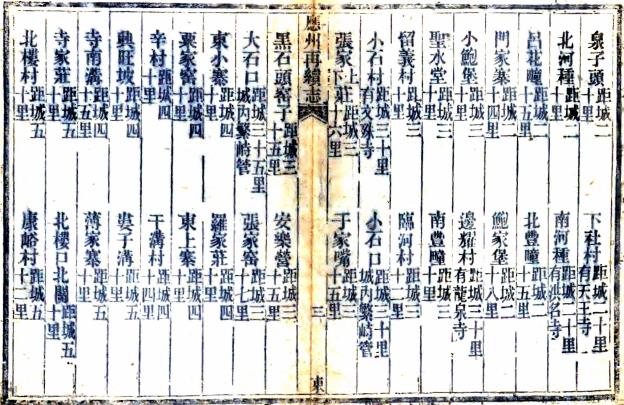 泉子頭距城二十里 下社村距城二十里有天王寺
北河種距城二十里 南河種距城二十里有洪名寺
呂花疃距城二十五里 北豐疃距城二十五里
門家寨距城二十四里 鮑家堡距城二十八里
小鮑堡距城三十里 邊耀村距城三十里有龍泉寺
聖水堂距城三十里 南豐疃距城三十里
留義村距城三十里 臨河村距城三十二里
小石村距城三十里有文殊寺 小石口距城三十里城內繁峙管
張家上下莊距城三十六里 于家嘴距城三十五里
應州再續志 三 東
黑石頭窑子距城三十五里 安樂營距城三十五里
大石口距城三十五里城內繁峙管 張家窑距城三十七里
東小寨距城四十里 羅家莊距城四十里
栗家窑距城四十里 東上寨距城四十里
辛村距城四十里 干溝村距城四十四里
興旺坡距城四十里 婁子溝距城四十里
寺南溝距城四十五里 薄家寨距城五十里
寺家莊距城五十里 北樓口北關距城五十里
北樓村距城五十里 康峪村距城五十二里